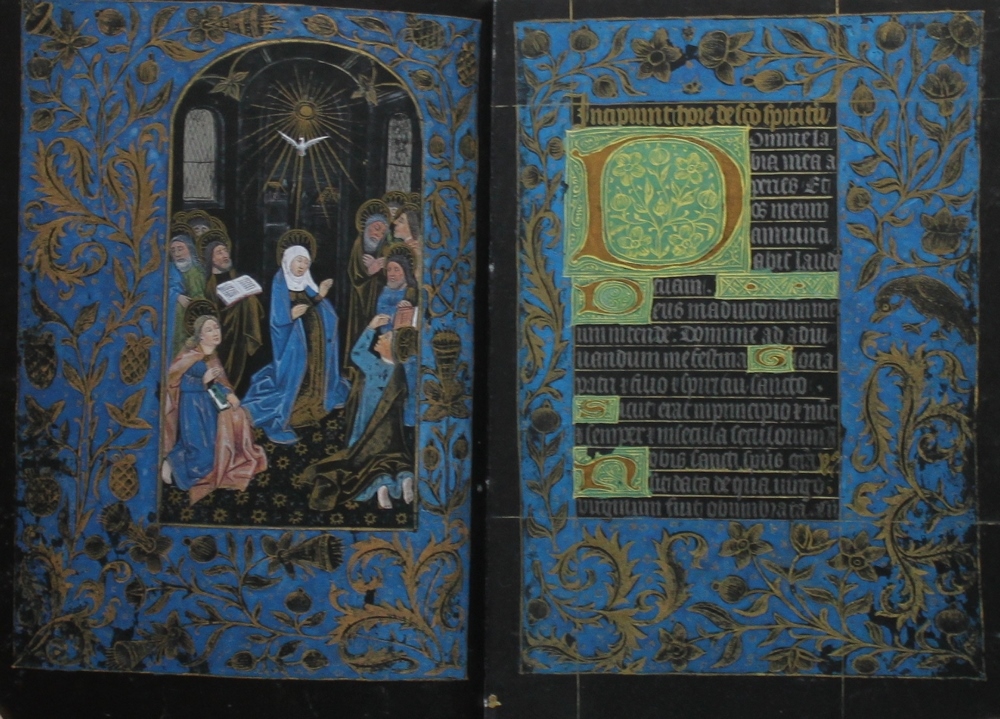 Incipiunt hore de sco spiritu
Domine la
bia mea a
peries Et
os meum
annuncia
abit laude
tuam.
Deus in adiutorium me
um intende: Domine ad adiu
uandum me festina Gloria
patri et filio et spiritui sancto.
Sicut erat in principio et nunc
semper et in secula seculorum
Nobis sancti spūs gra
sit data de qua uirgo
uirginum fuit obumbrata